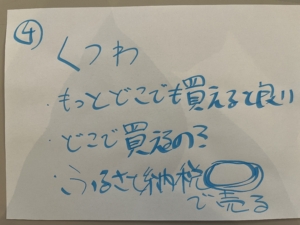 ④
くつわ
・もっとどこでも買えると良い
・どこで買えるの?
・ふるさと納税
で売る